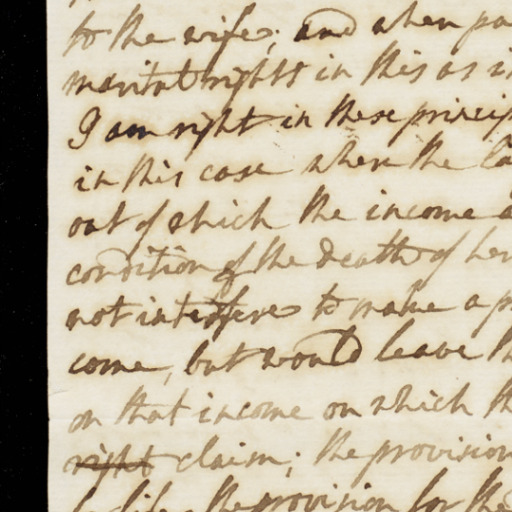 to the wife; and when pa
marital rights in this as i
I am right in these princip
in this case where the La
out of which the income a
condition of the death of her
not interfere to make a p
come, but would leave th
on that income on which th
right claim; the provision
the provision for the